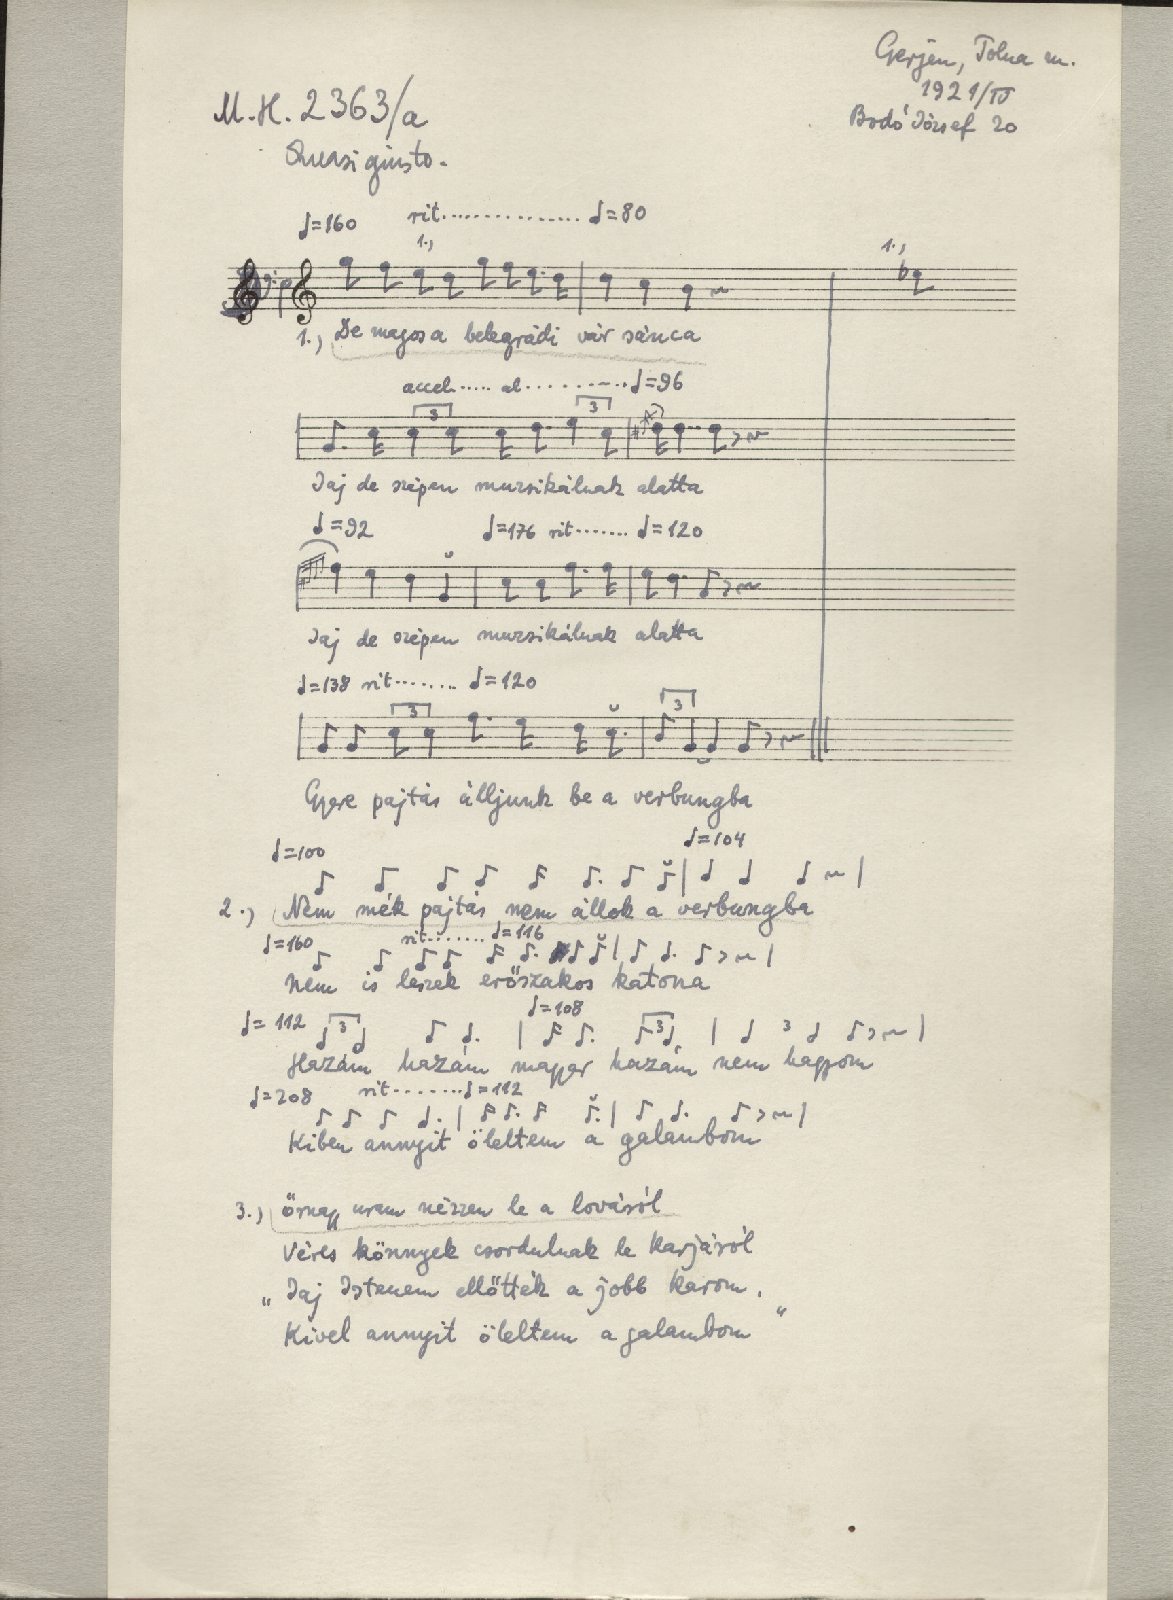 Gerjén, Tolna m.
1921/IV
Bodó József 20
M.H. 2363/a
Quasi giusto.
♩=160 rit............... ♩=80
1.,
1.,
1., De magos a belegrádi vár sánca
accel..... al........... ♩=96
3 3
Jaj de szépen muzsikálnak alatta
♩=92 ♩=176 rit....... ♩=120
Jaj de szépen muzsikálnak alatta
♩=138 rit....... ♩=120
3 3
Gyere pajtás álljunk be a verbungba
♩=100 ♩=104
2., Nem mék pajtás nem állok a verbungba
♩=160 rit....... ♩=116
Nem is leszek erőszakos katona
♩=112 3 ♩=108 3 3
Hazám hazám magyar hazám nem hagyom
♩=208 rit........ ♩=112
Kiben annyit öleltem a galambom
3., Őrnagy uram nézzen le a lováról
Véres könnyek csordulnak le karjáról
„Jaj Istenem ellőtték a jobb karom,
Kivel annyit öleltem a galambom"